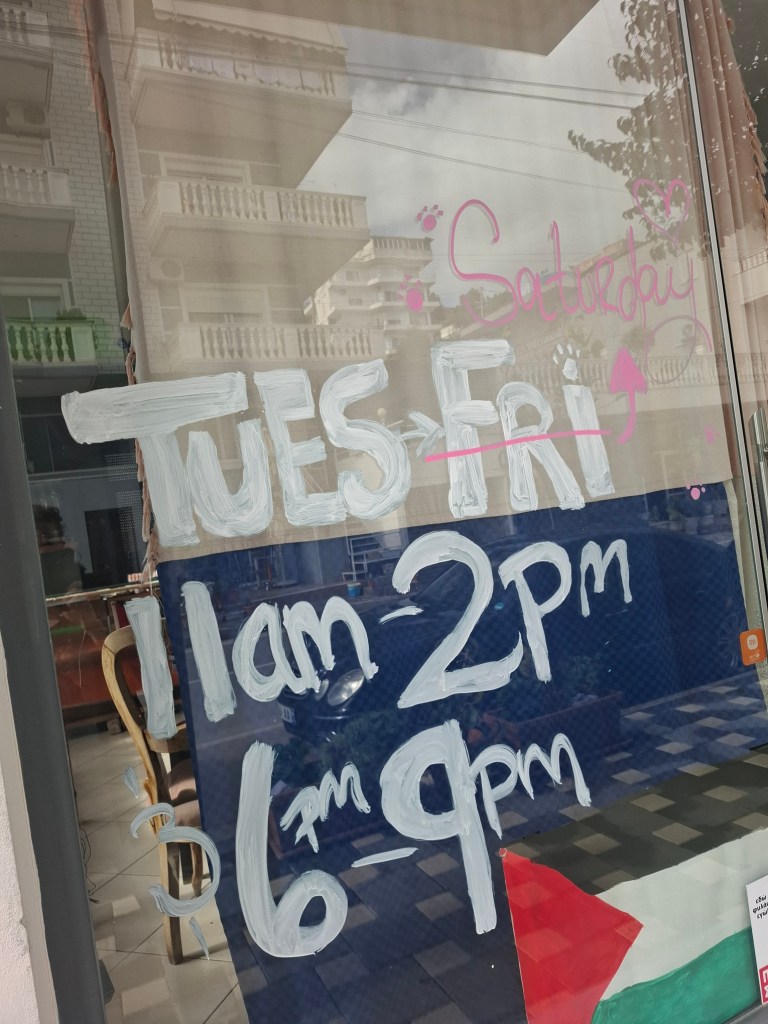 Saturday
TUES → FRi
11am - 2pm
6pm - 9pm